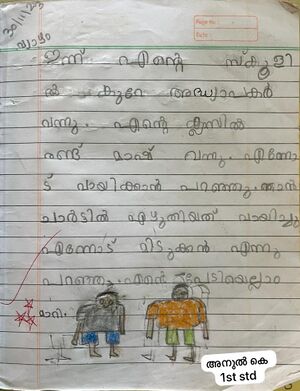 30/11/23
വ്യാഴം
Page No:
Date:
ഇന്ന് എന്റെ സ്കൂളി
ൽ കുറേ അദ്ധ്യാപകർ
വന്നു. എന്റെ ക്ലസിൽ
രണ്ട് മാഷ് വന്നു. എന്നോ
ട് വായിക്കാൻ പറഞ്ഞു. ഞാൻ
ചാർടിൽ എഴുതിയത് വായിച്ചു
എന്നോട് മിടുക്കൻ എന്നു
പറഞ്ഞു. എന്റെ പേടിയെല്ലാം
മാറി.
അനുൽ കെ
1st std